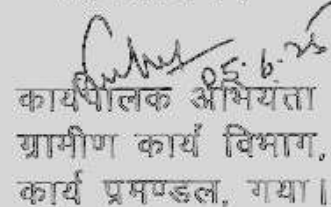 05.6.25
कार्यपालक अभियंता
ग्रामीण कार्य विभाग,
कार्य प्रमण्डल, गया।